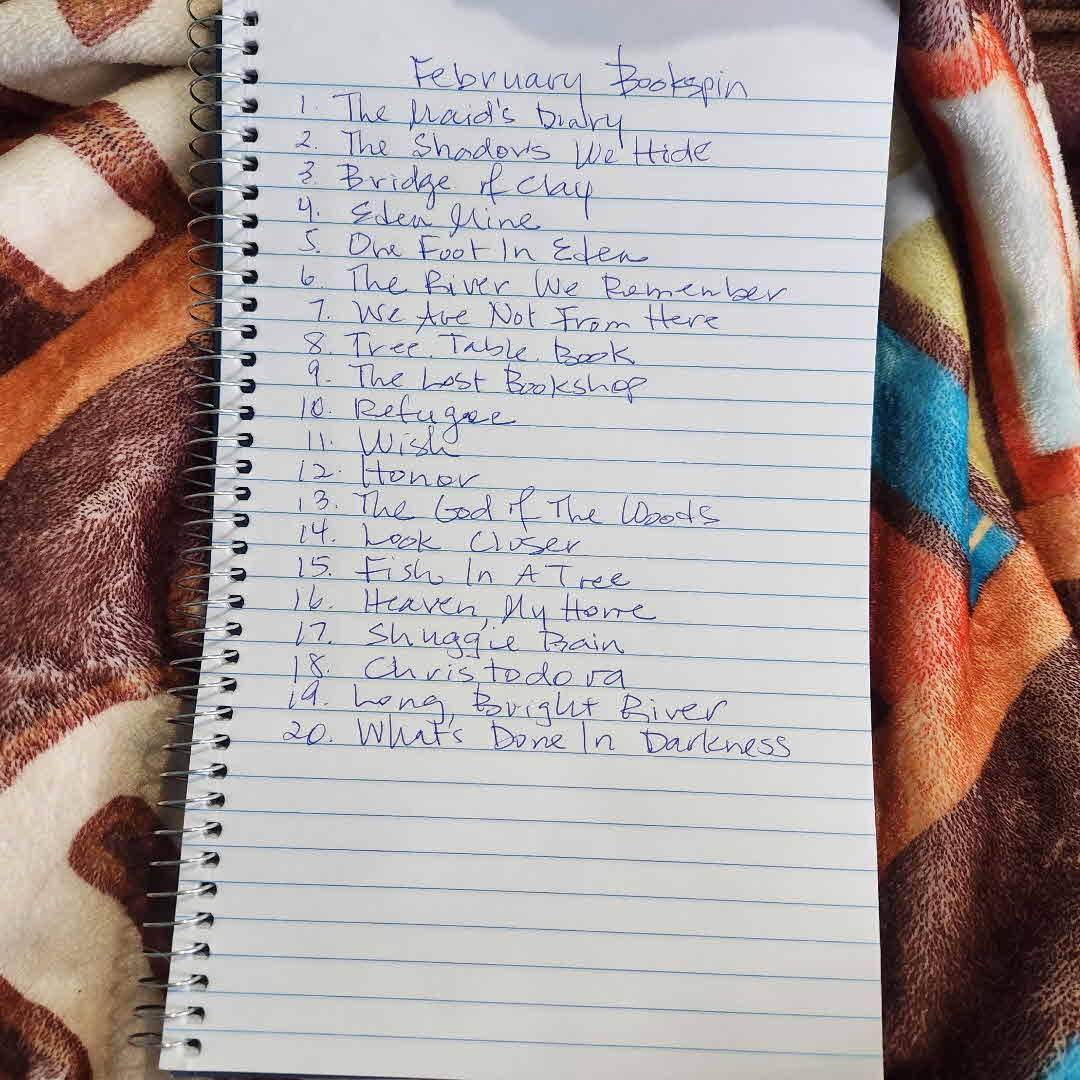 February Bookspin
1. The Maid's Diary
2. The Shadows We Hide
3. Bridge of Clay
4. Eden Mine
5. One Foot In Eden
6. The River We Remember
7. We Are Not From Here
8. Tree. Table. Book
9. The Lost Bookshop
10. Refugee
11. Wish
12. Honor
13. The God of The Woods
14. Look Closer
15. Fish In A Tree
16. Heaven, My Home
17. Shuggie Bain
18. Christodora
19. Long, Bright River
20. What's Done In Darkness